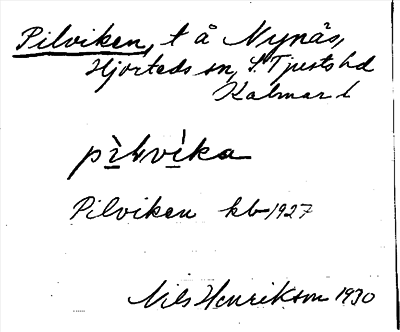 Pilviken, t å Nynäs,
Hjorteds sn, S. Tjusts hd
Kalmar l
pìlvìka
Pilviken kb 1927
Nils Henrikson 1930